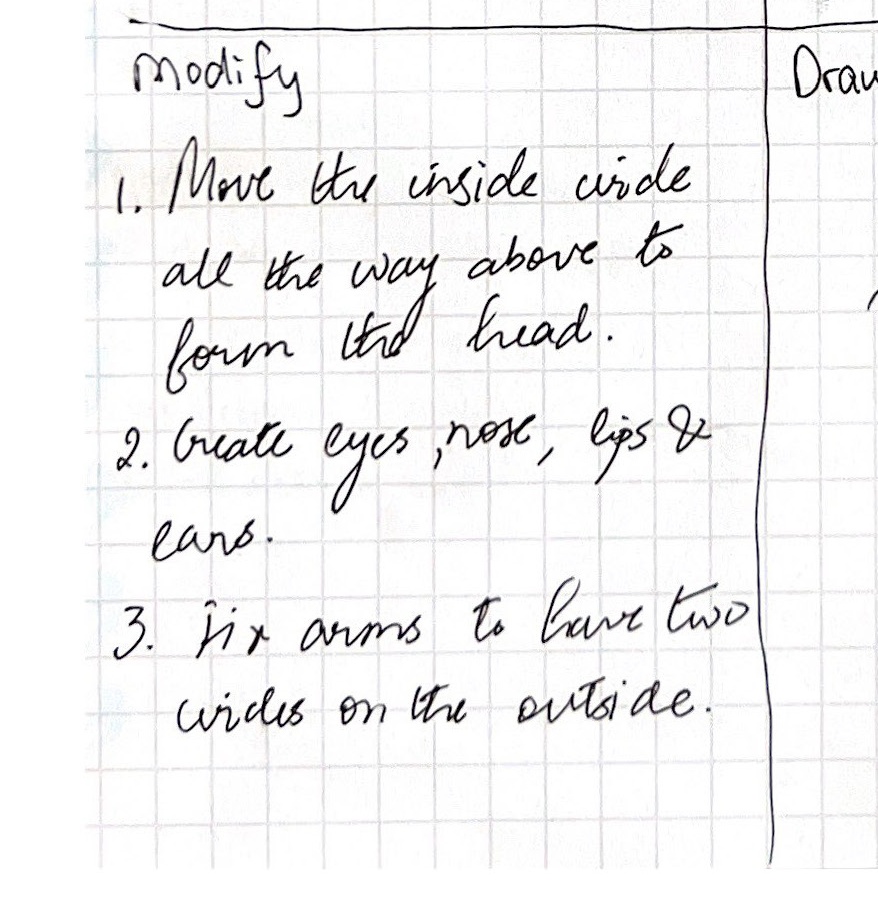 Modify
Draw
1. Move the inside circle
all the way above to
form the head.
2. Create eyes, nose, lips &
ears.
3. Fix arms to have two
circles on the outside.